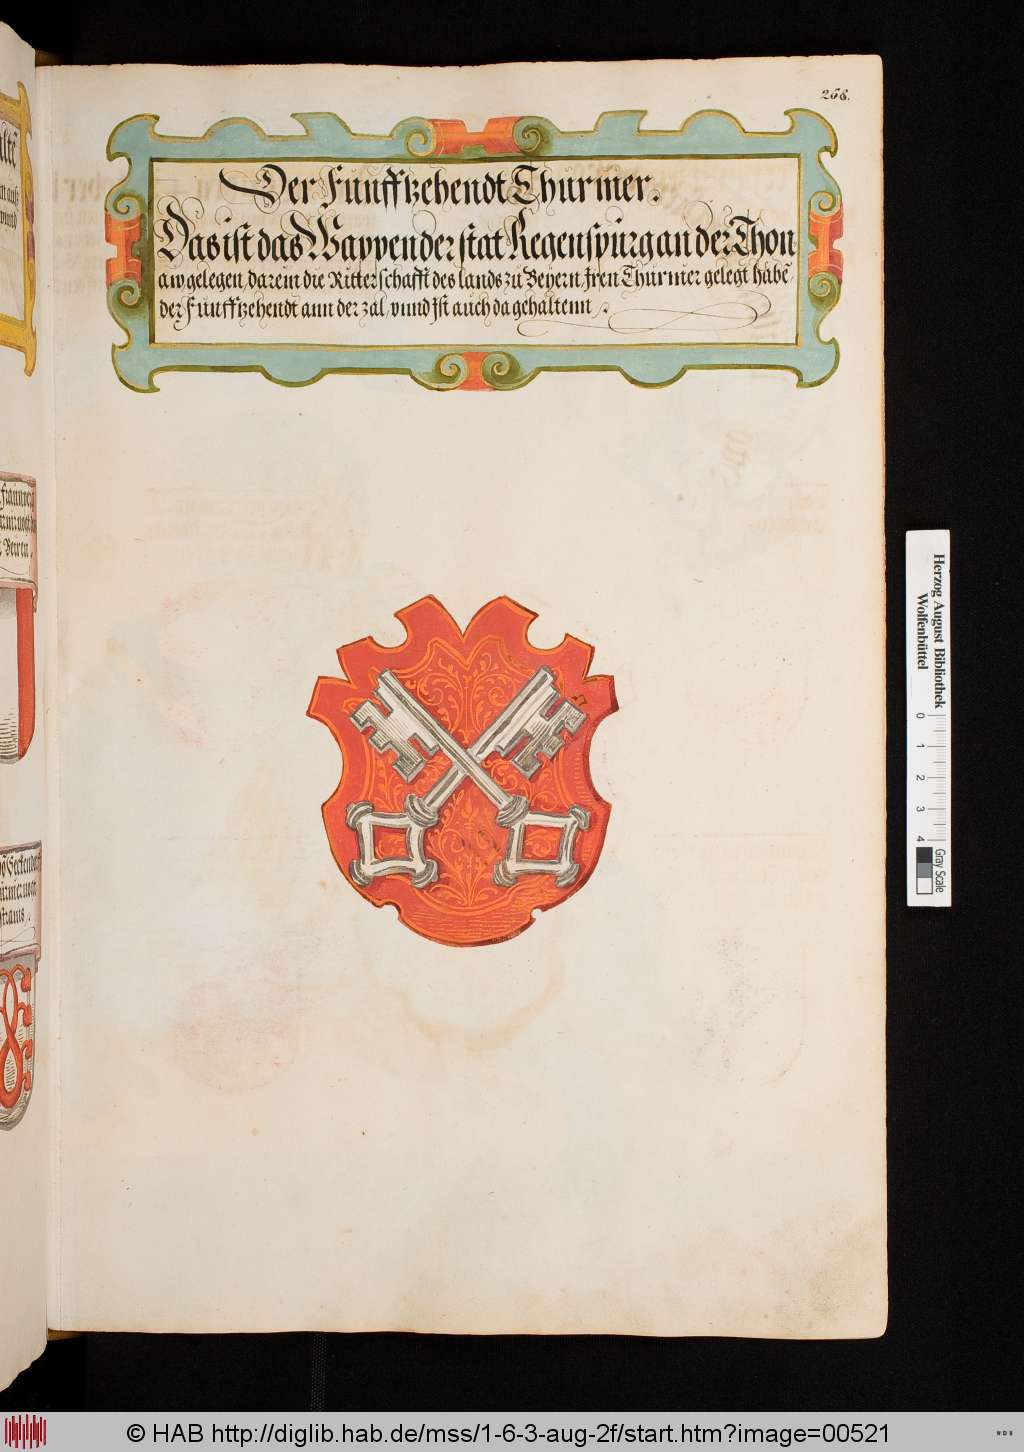 258.
Der Fünffzehendt Thurmier.
Das ist das Wappen der stat Regenspürg an der Thon
aw gelegen, darein die Ritterschafft des lands zu Beyern jren Thurnier gelegt habē
der Fünffzehendt ann der zal, vnnd Jst auch da gehaltenn
Herzog August Bibliothek
Wolfenbüttel
0 1 2 3 4
Gray Scale
© HAB http://diglib.hab.de/mss/1-6-3-aug-2f/start.htm?image=00521